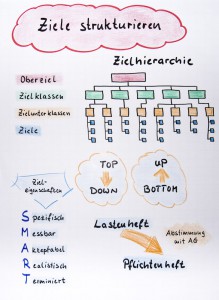 Ziele strukturieren
Zielhierarchie
Oberziel
Zielklassen
Zielunterklassen
Ziele
Ziel-
eigenschaften
TOP
DOWN
UP
BOTTOM
Spezifisch
Messbar
Akzeptabel
Realistisch
Terminiert
Lastenheft
Abstimmung
mit AG
Pflichtenheft